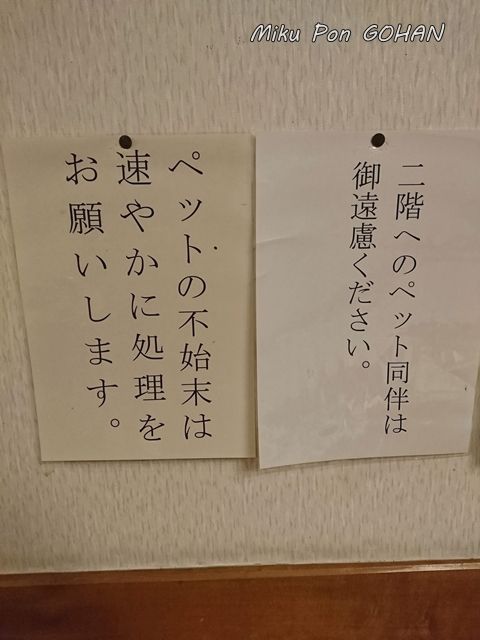 Miku Pon GOHAN
二階へのペット同伴は
御遠慮ください。
ペットの不始末は
速やかに処理を
お願いします。